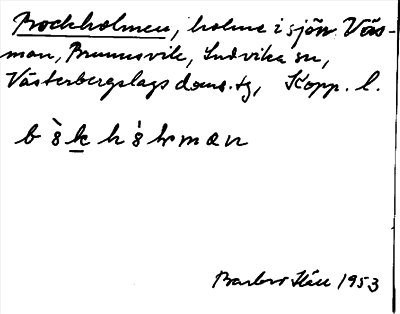 Bockholmen, holme i sjön Väs-
man, Brunnsvik, Ludvika sn,
Västerbergslags doms.tg, Kopp. l.
b ò̤ k h ó̤ lmen
1953